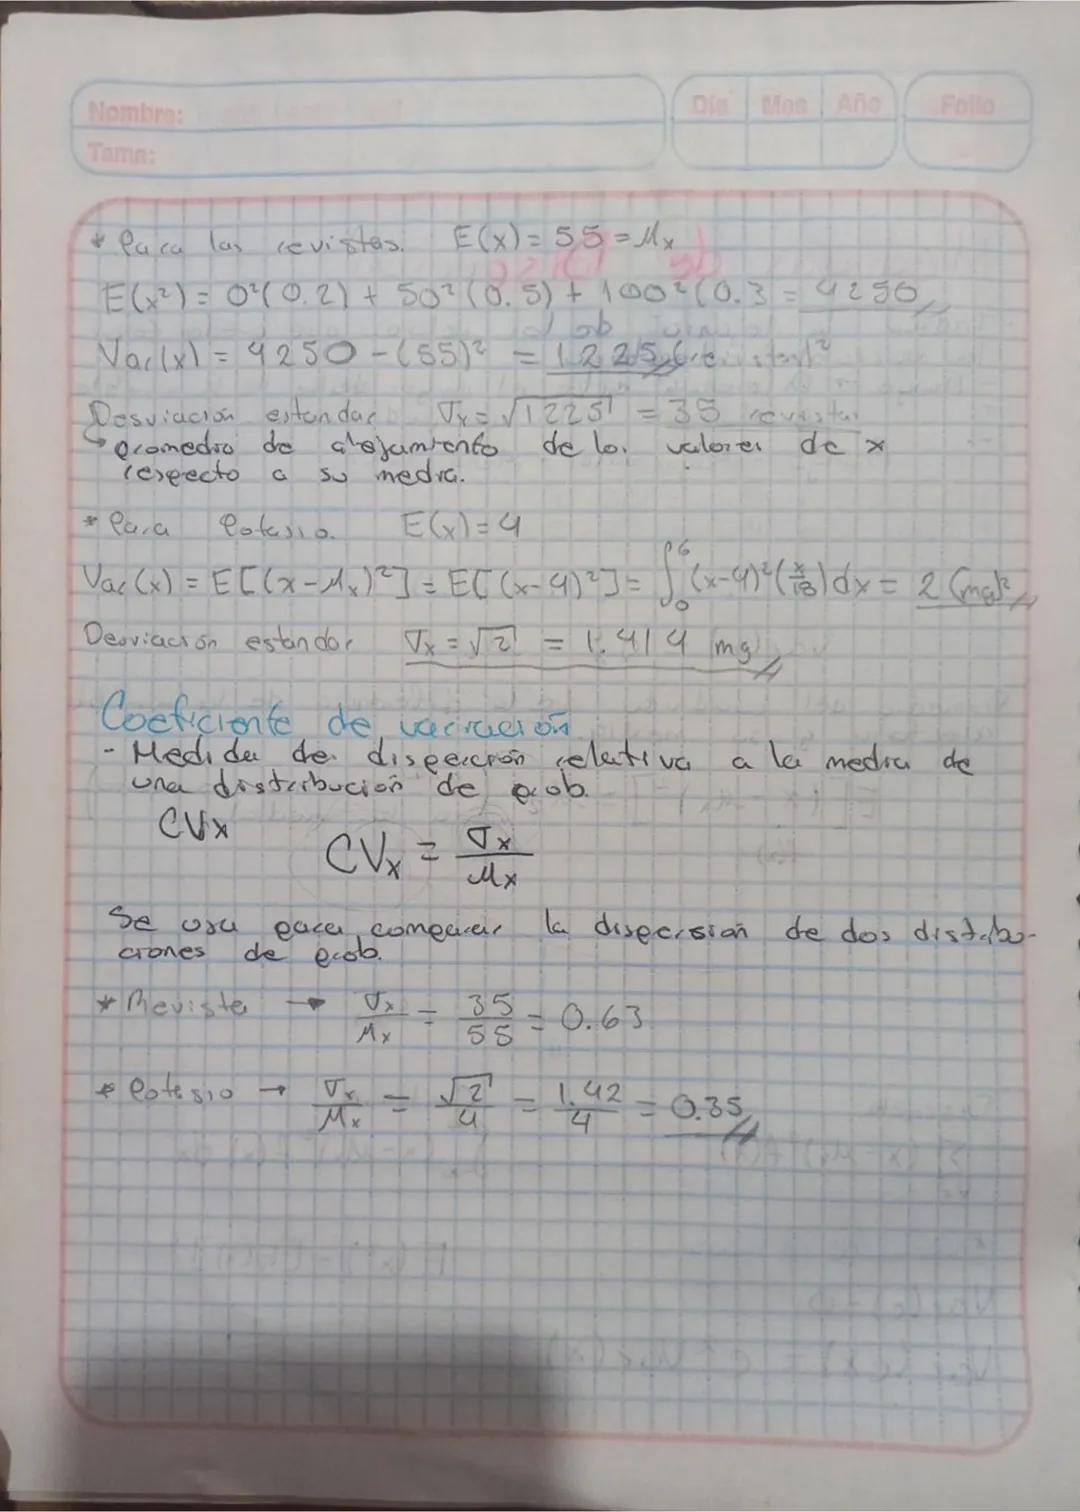 Nombre:
Día Mes Año Folio
Tema:
* Para las revistas. E(x) = 55 = Mx
E(x²) = 0²(0.2) + 50²(0.5) + 100²(0.3 = 4250
Var(x) = 4250 - (55)² = 1225 (revistas)²
Desviación estandar σx = √1225 = 35 revistas
↳ promedio de alejamiento de los valores de x
respecto a su media.
* Para Potasio. E(x) = 4
Var(x) = E[(x-Mx)²] = E[(x-4)²] = ∫₀⁶ (x-4)²(x/18)dx = 2 (mg)²
Desviación estandar σx = √2 = 1.414 mg
Coeficiente de variación
- Medida de disperción relativa a la media de
una distribución de prob.
CVx
CVx = σx/Mx
Se usa para comparar la dispersión de dos distribu-
ciones de prob.
* Revista → σx/Mx = 35/55 = 0.63
* Potasio → σx/Mx = √2/4 = 1.42/4 = 0.35